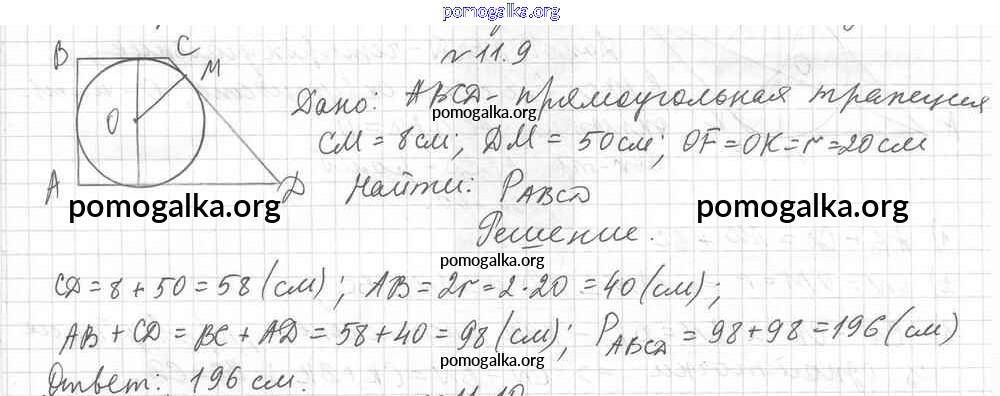 pomogalka.org
№11.9
B C M
O
A D
Дано: ABCD - прямоугольная трапеция
pomogalka.org
CM = 8см; DM = 50см; OF=OK=r=20см
Найти: P_ABCD
pomogalka.org
pomogalka.org
Решение.
pomogalka.org
CD = 8 + 50 = 58 (см); AB = 2r = 2·20 = 40 (см);
AB + CD = BC + AD = 58 + 40 = 98 (см); P_ABCD = 98 + 98 = 196 (см)
pomogalka.org
Ответ: 196 см.